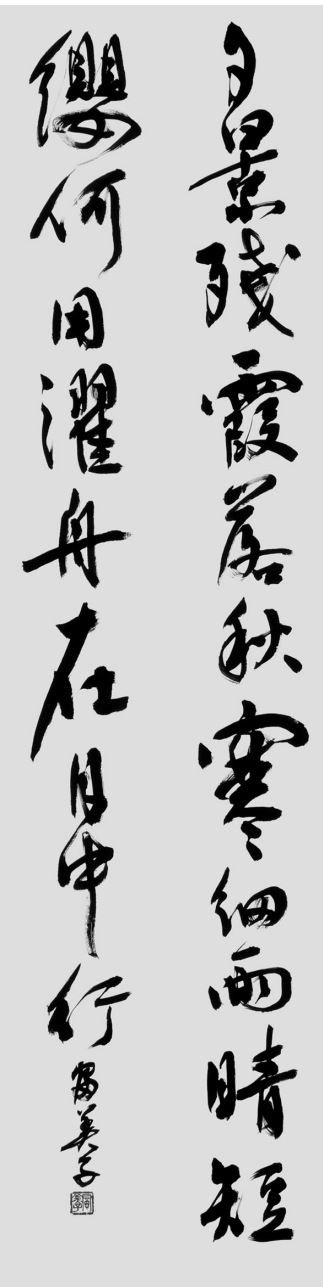 夕景残霞落秋寒細雨晴短
纓何用濯舟在月中行
富美子